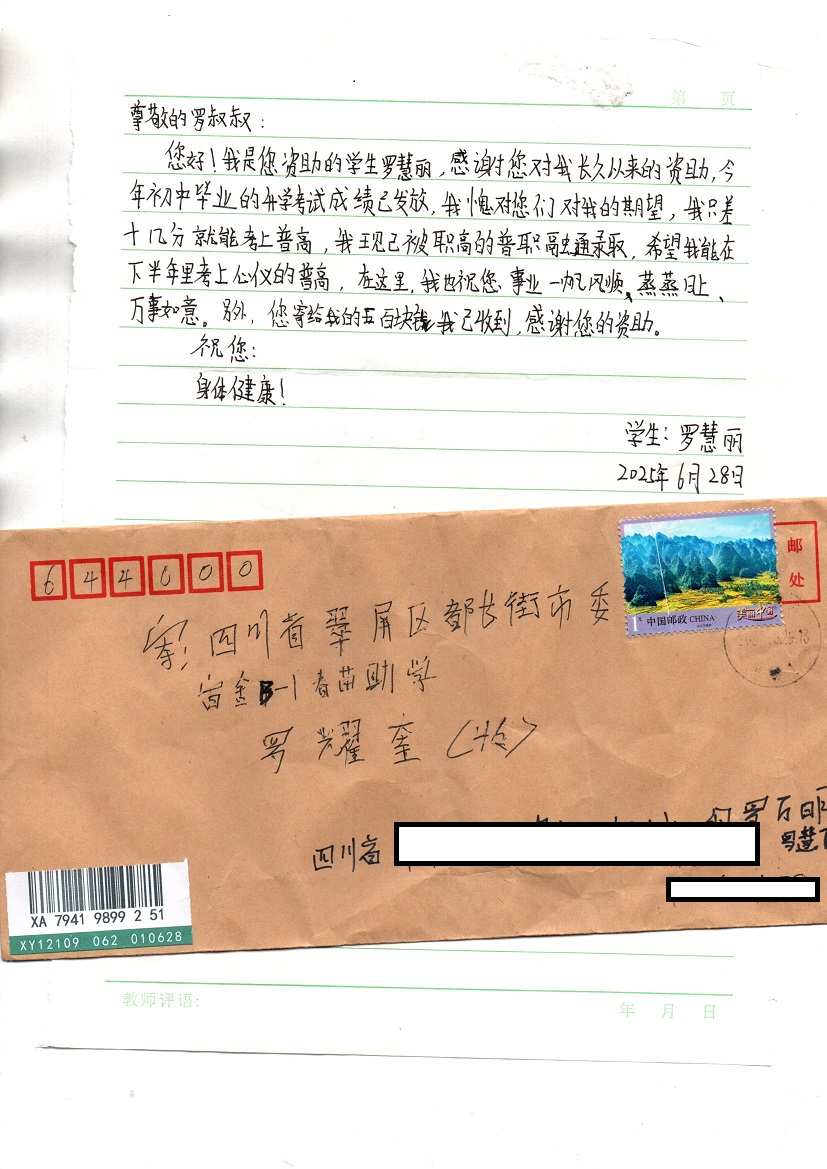 第 页
尊敬的罗叔叔：
您好！我是您资助的学生罗慧丽，感谢您对我长久以来的资助，今
年初中毕业的升学考试成绩已发放，我愧对您们对我的期望，我只差
十几分就能考上普高，我现已被职高的普职融通录取，希望我能在
下半年里考上心仪的普高，在这里，我也祝您、事业一帆风顺、蒸蒸日上、
万事如意。另外，您寄给我的五百块钱我已收到，感谢您的资助。
祝您：
身体健康！
学生：罗慧丽
2025年6月28日
644000
邮
处
1元 中国邮政 CHINA 美丽中国
寄：四川省翠屏区都长街市委
宿舍B-1春苗助学
罗耀奎（收）
四川省
罗万明
XA 7941 9899 2 51
XY12109 062 010628
教师评语：
年 月 日